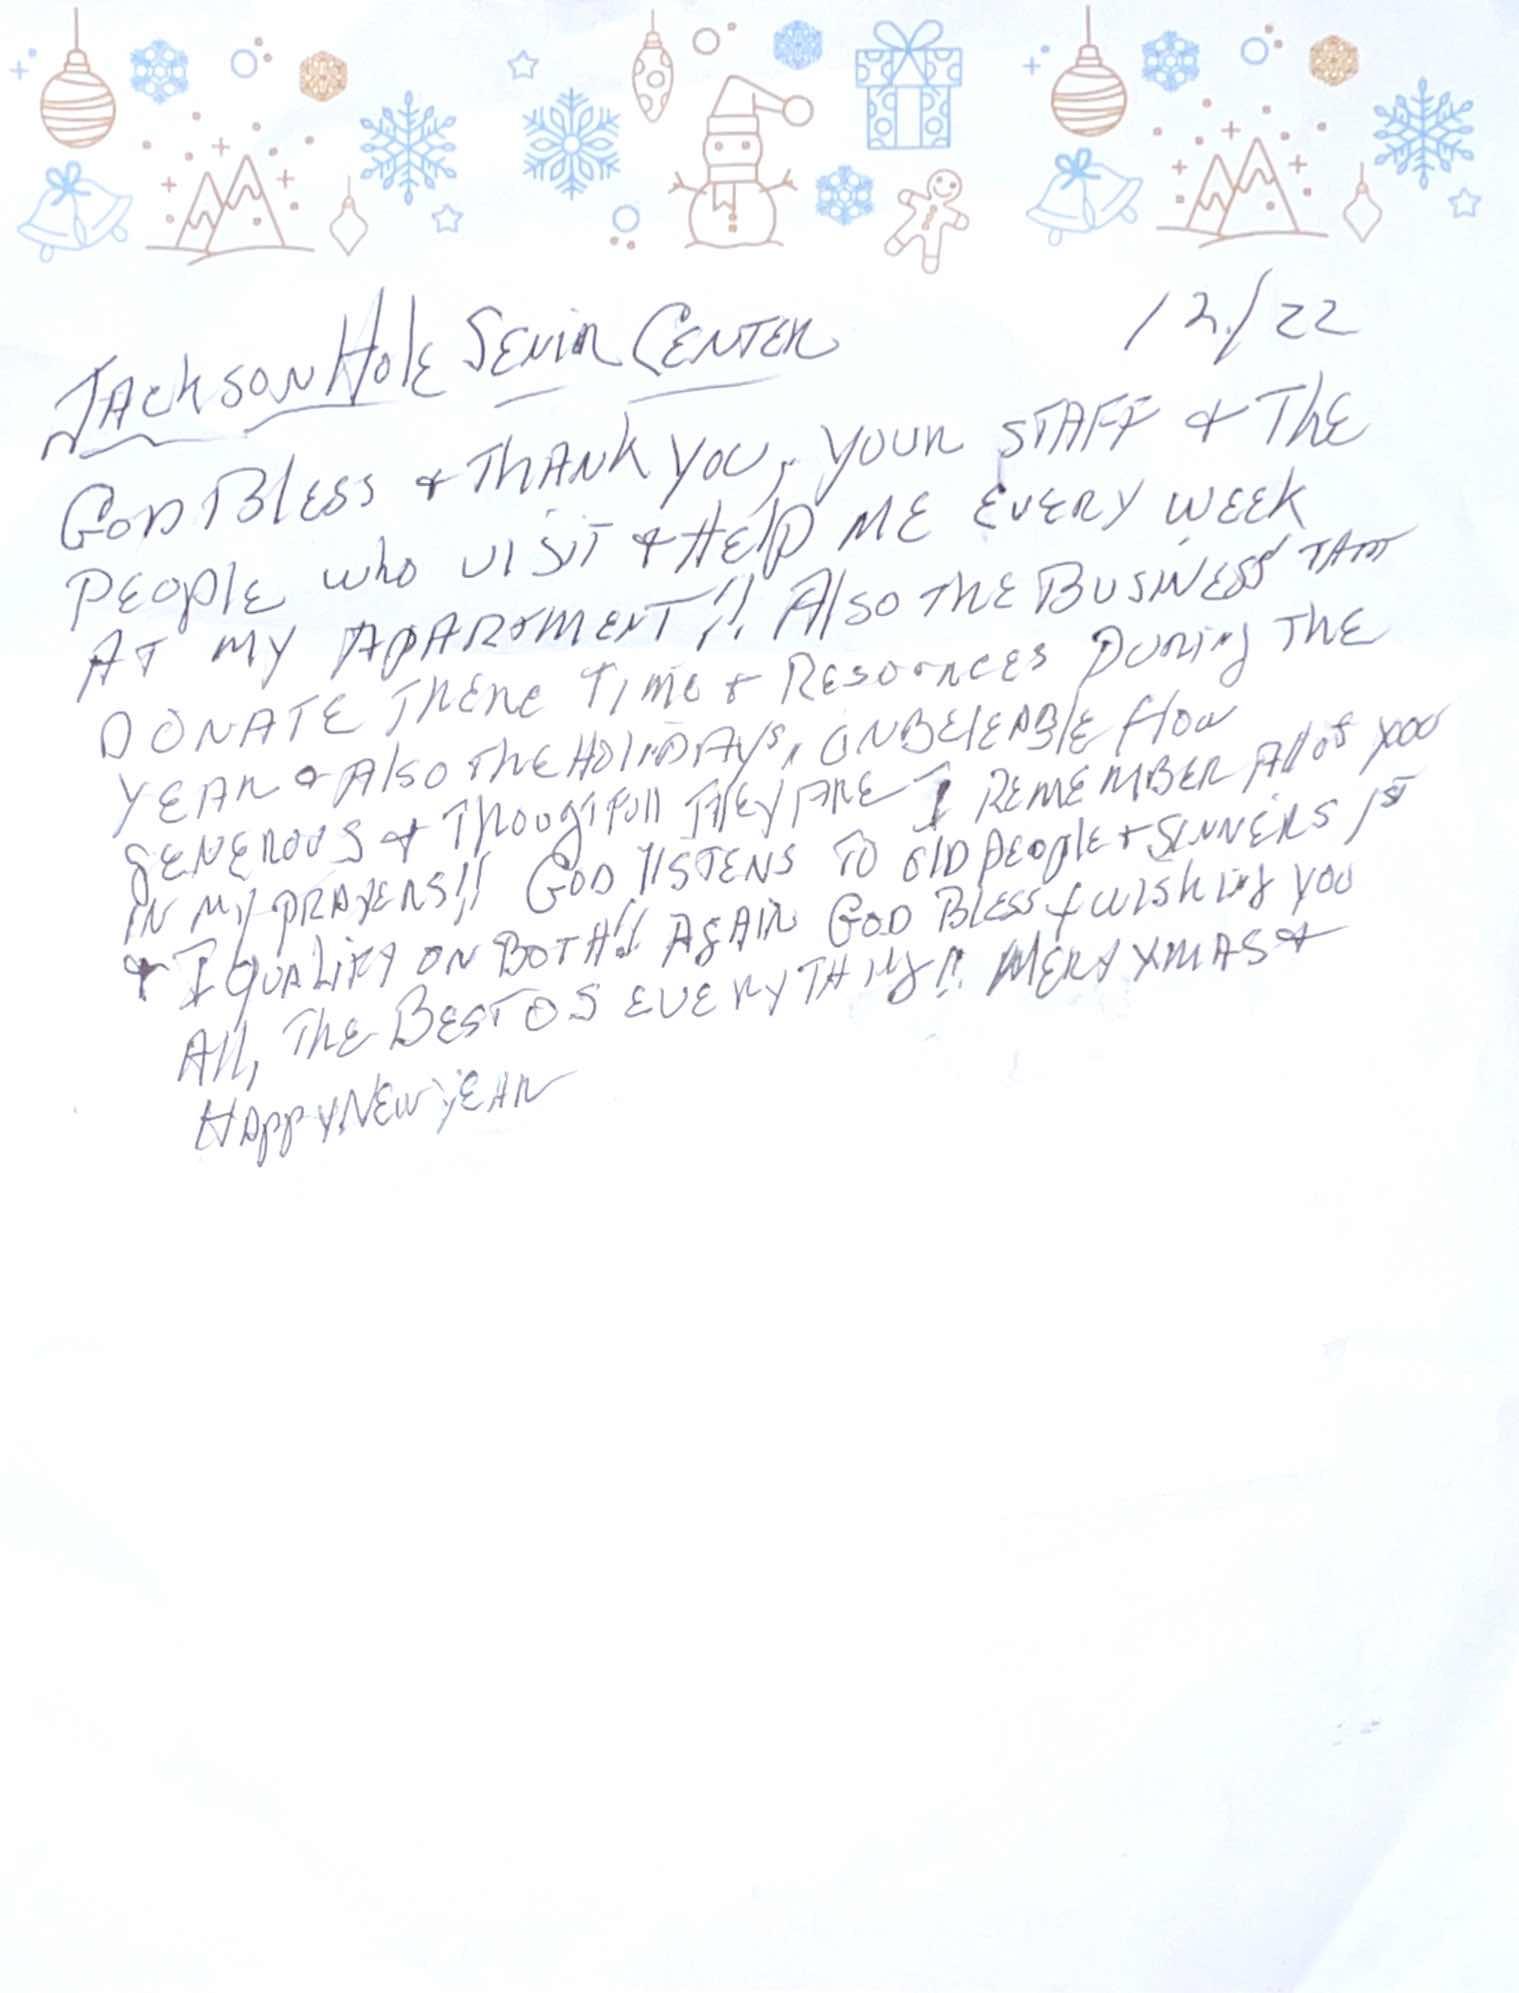 Jackson Hole Senior Center 12/22
God Bless & Thank you, your staff & the
People who visit & Help me every week
At my Apartment!! Also the Business that
Donate There Time & Resources During the
Year & Also the Holidays, unbeleable How
generous & Thoughtfull They Are I Remember All of you
in my prayers!! God listens to old people & sinners 1st
& I qualify on Both!! Again God Bless & wishing you
All, the Best of everything!! Mery Xmas &
Happy New Year